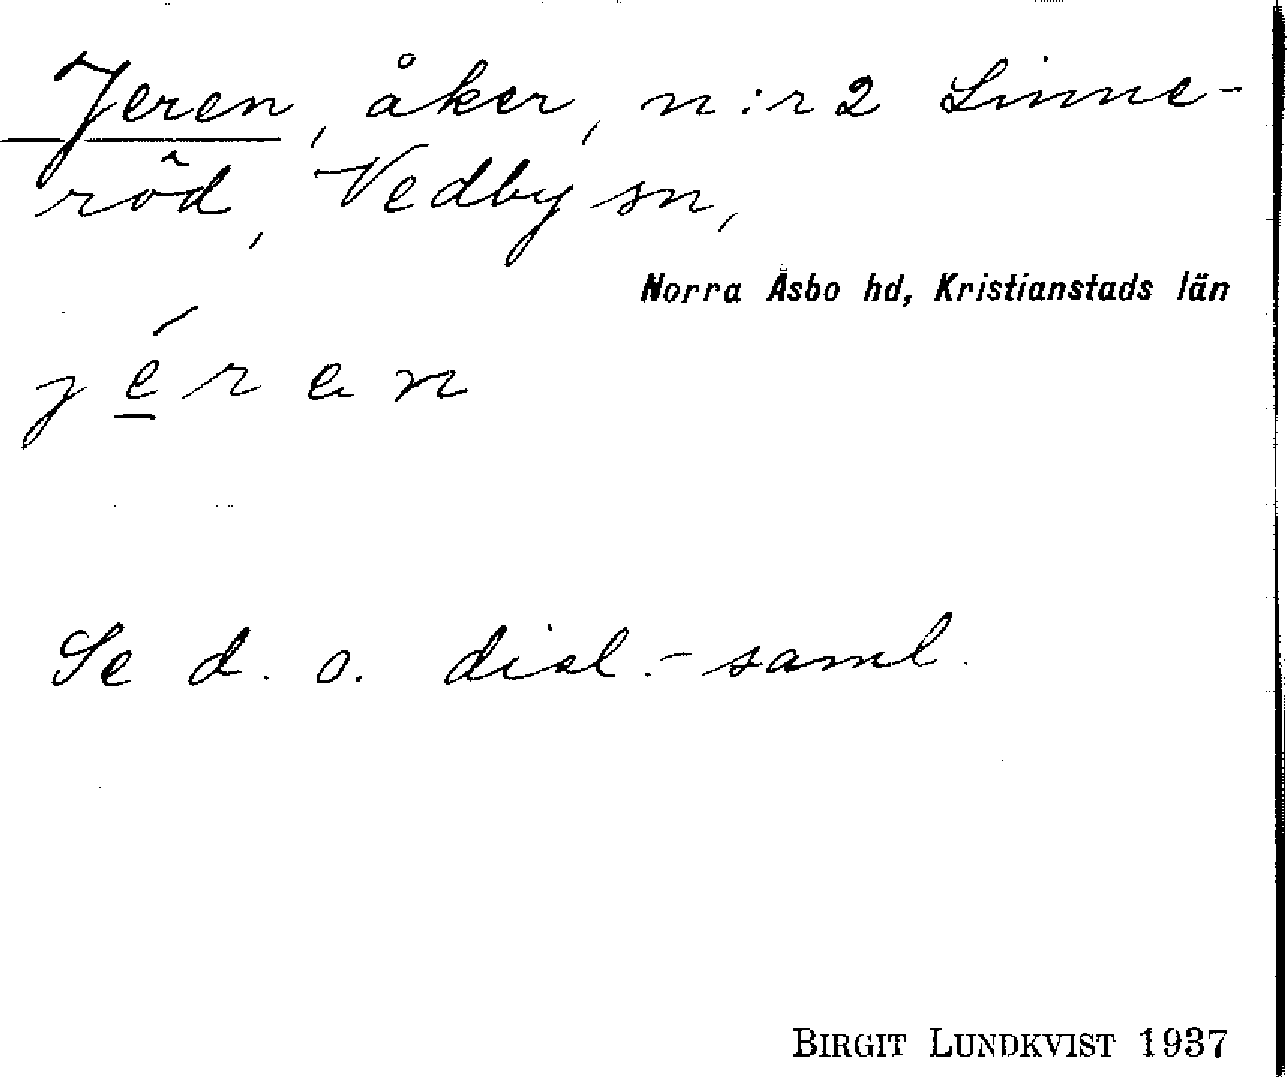 Jeren, åker, n:r 2 Linne-
röd, Vedby sn,
Norra Åsbo hd, Kristianstads län
jéran
Se d. o. dial.-saml.
BIRGIT LUNDKVIST 1937